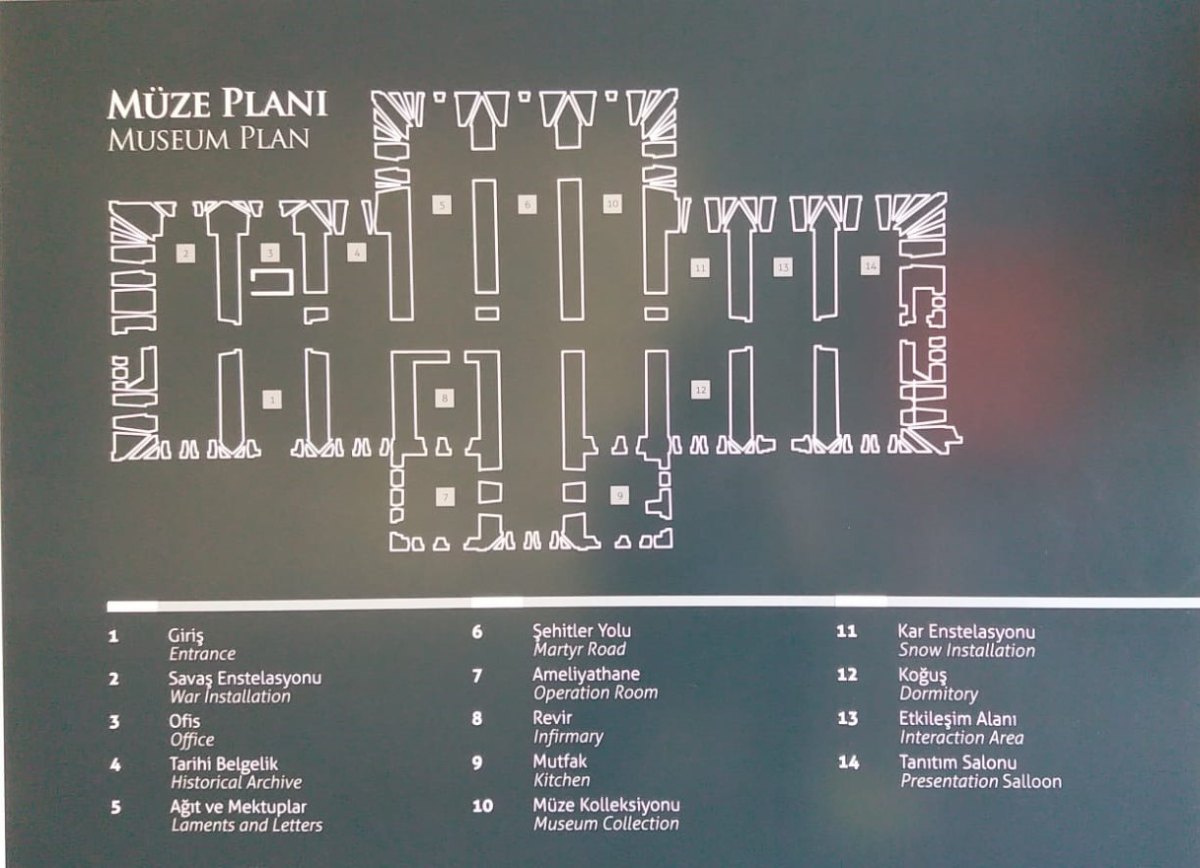 MÜZE PLANI
MUSEUM PLAN
5
6
10
2
3
4
11
13
14
1
8
12
7
9
1 Giriş
Entrance
2 Savaş Enstelasyonu
War Installation
3 Ofis
Office
4 Tarihi Belgelik
Historical Archive
5 Ağıt ve Mektuplar
Laments and Letters
6 Şehitler Yolu
Martyr Road
7 Ameliyathane
Operation Room
8 Revir
Infirmary
9 Mutfak
Kitchen
10 Müze Kolleksiyonu
Museum Collection
11 Kar Enstelasyonu
Snow Installation
12 Koğuş
Dormitory
13 Etkileşim Alanı
Interaction Area
14 Tanıtım Salonu
Presentation Salloon